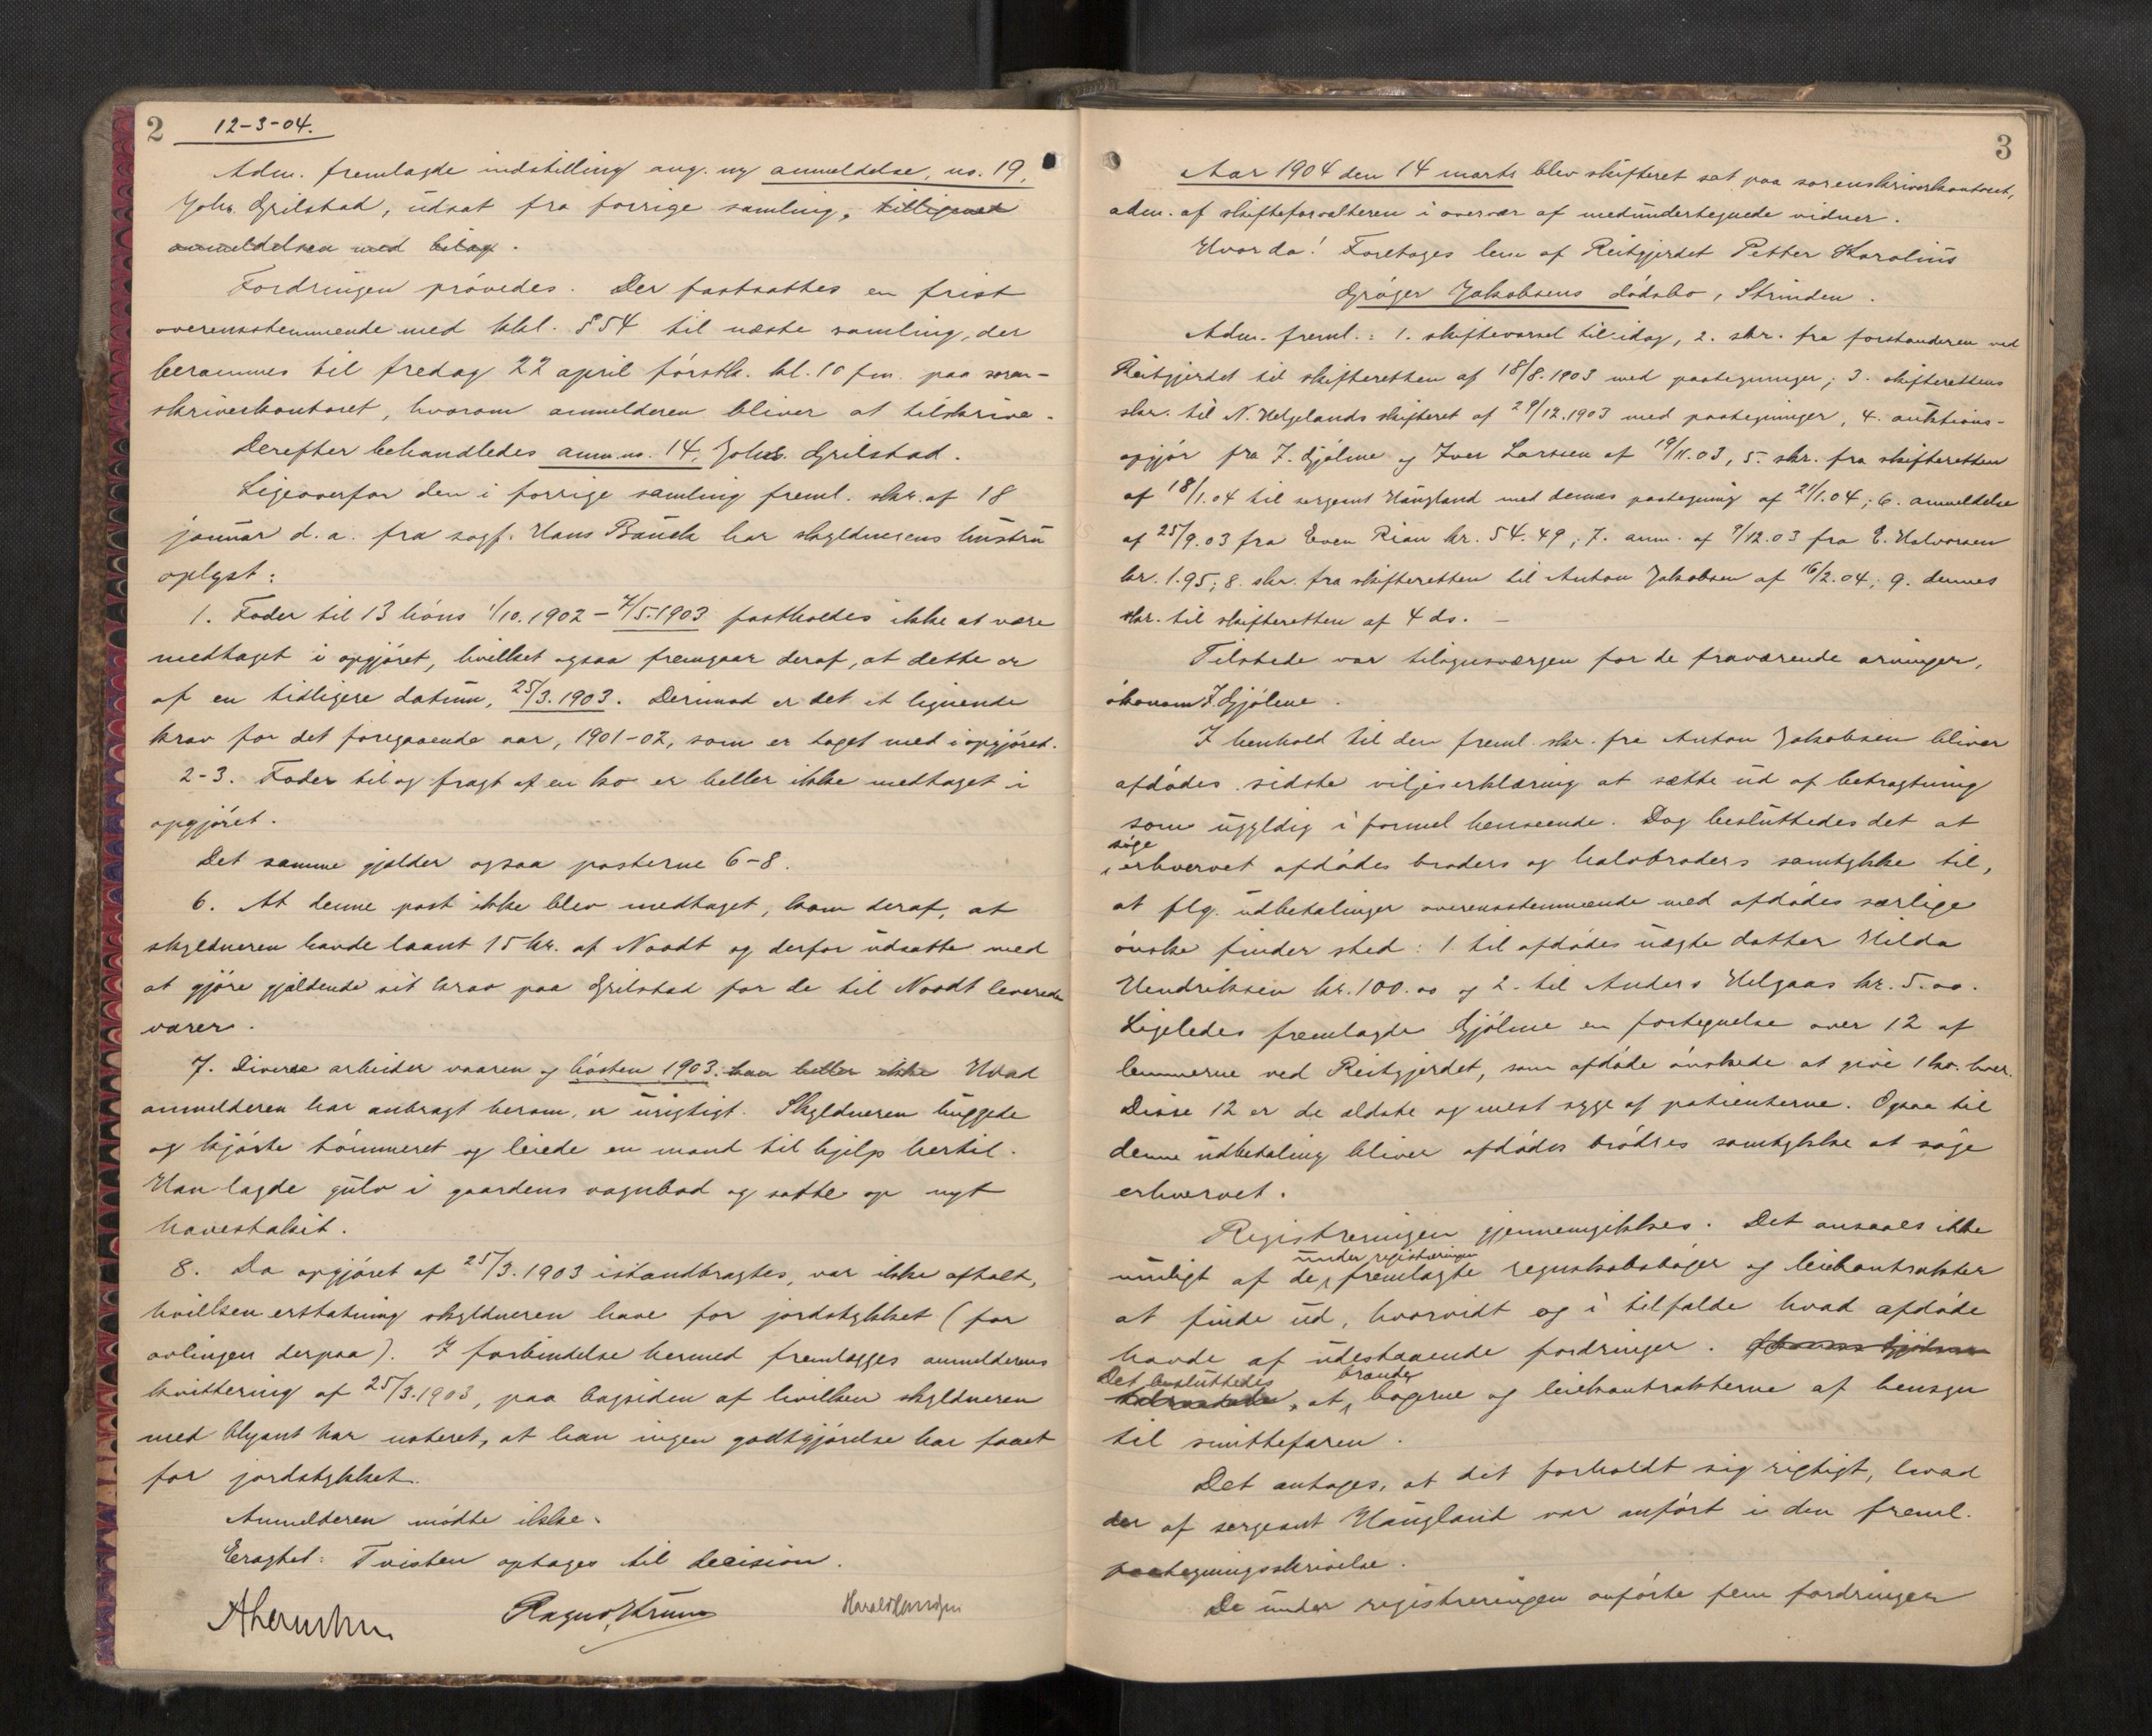 2
12-3-04.
Adm. fremlagde indstilling ang. ny anmeldelse, no. 19,
Johs. Grilstad, udsat fra forrige samling, tilligemed
anmeldelsen med bilag.
Fordringen prövedes. Der fastsattes en frist
overensstemmende med kkl. § 54 til næste samling, der
berammes til fredag 22 april förstk. kl. 10 fm. paa soren-
skriverkontoret, hvorom anmelderen bliver at tilskrive.
Derefter behandledes anm. no. 14, Johs. Grilstad.
Ligeoverfor den i forrige samling freml. skr. af 18
januar d. a. fra sagf. Hans Bauck har skyldnerens hustru
oplyst:
1. Foder til 13 höns 1/10.1902 - 7/5.1903 fastholdes ikke at være
medtaget i opgjöret, hvilket ogsaa fremgaar deraf, at dette er
af en tidligere datum, 25/3.1903. Derimod er det et lignende
krav for det foregaaende aar, 1901-02, som er taget med i opgjöret.
2-3. Foder til og fragt af en ko er heller ikke medtaget i
opgjöret.
Det samme gjælder ogsaa posterne 6-8.
6. At denne post ikke blev medtaget, kom deraf, at
skyldneren havde laant 15 kr. af Noodt og derfor udsatte med
at gjöre gjældende sit krav paa Grilstad for de til Noodt leverede
varer.
7. Diverse arbeider vaaren og hösten 1903. kan heller ikke Hvad
anmelderen har anbragt herom, er urigtigt. Skyldneren huggede
og kjörte tömmeret og leiede en mand til hjelp hertil.
Han lagde gulv i gaardens vognbod og satte op nyt
havestakit.
8. Da opgjöret af 25/3.1903 istandbragtes, var ikke aftalt,
hvilken erstatning skyldneren have for jordstykket (for
avlingen derpaa). I forbindelse hermed fremlægges anmelderens
kvittering af 25/3.1903, paa bagsiden af hvilken skyldneren
med blyant har noteret, at han ingen godtgjörelse har faaet
for jordstykket.
Anmelderen mödte ikke.
Eragtet: Tvisten optages til decision.
3
Aar 1904 den 14 marts blev skifteret sat paa sorenskriverkontoret,
adm. af skifteforvalteren i overvær af medundertegnede vidner.
Hvor da! Foretages lem af Reitgjerdet Petter Karolius
Gröger Jakobsens dödsbo, Strinden.
Adm. freml.: 1. skiftevarsel til idag, 2. skr. fra forstanderen ved
Reitgjerdet til skifteretten af 18/8.1903 med paategninger; 3. skifterettens
skr. til N. Helgelands skifteret af 29/12.1903 med paategninger, 4. auktions-
opgjör fra J. Gjölme og Iver Larssen af 19/11.03, 5. skr. fra skifteretten
af 18/1.04 til sergeant Haugland med dennes paategning af 21/1.04; 6. anmeldelse
af 25/9.03 fra Even Rian kr. 54.49; 7. anm. af 9/12.03 fra E. Halvorsen
kr. 1.95; 8. skr. fra skifteretten til Anton Jakobsen af 16/2.04; 9. dennes
skr. til skifteretten af 4 ds. -
Tilstede var tilsynsværgen for de fraværende arvinger,
ökonom J. Gjölme.
I henhold til den freml. skr. fra Anton Jakobsen bliver
afdödes sidste viljeserklæring at sætte ud af betragtning
som ugyldig i formel henseende. Dog besluttedes det at
söge
erhvervet afdödes broders og halvbroders samtykke til,
at flg. udbetalinger overensstemmende med afdödes særlige
önske finder sted: 1. til afdödes uægte datter Hilda
Hendriksen kr. 100.00 og 2. til Anders Helgaas kr. 5.00.
Ligeledes fremlagde Gjölme en fortegnelse over 12 af
lemmerne ved Reitgjerdet, som afdöde önskede at give 1 kr. hver.
Disse 12 er de ældste og mest syge af patienterne. Ogsaa til
denne udbetaling bliver afdödes brödres samtykke at söge
erhvervet.
Registreringen gjennemgikkes. Det ansaaes ikke
under registreringen
muligt af de fremlagte regnskabsböger og leiekontrakter
at finde ud, hvorvidt og i tilfælde hvad afdöde
havde af udestaaende fordringer. Ökonom Gjölme
Det besluttedes brænde
tilraadede, at bögerne og leiekontrakterne af hensyn
til smittefaren.
Det antages, at det forholdt sig rigtigt, hvad
der af sergeant Haugland var anfört i den freml.
paategningsskrivelse.
De under registreringen anförte fem fordringer